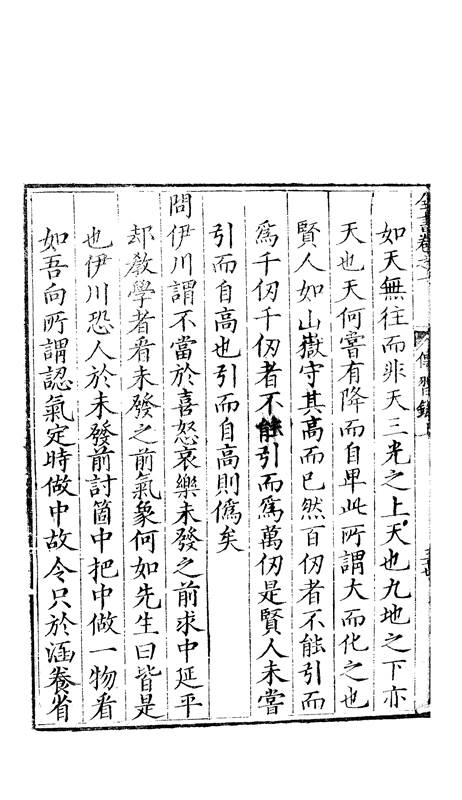 全書卷之一 傳習錄
如天無往而非天三光之上天也九地之下亦
天也天何嘗有降而自卑此所謂大而化之也
賢人如山嶽守其高而已然百仞者不能引而
為千仞千仞者不能引而為萬仞是賢人未嘗
引而自高也引而自高則僞矣
問伊川謂不當於喜怒哀樂未發之前求中延平
却敎學者看未發之前氣象何如先生曰皆是
也伊川恐人於未發前討箇中把中做一物看
如吾向所謂認氣定時做中故令只於涵養省